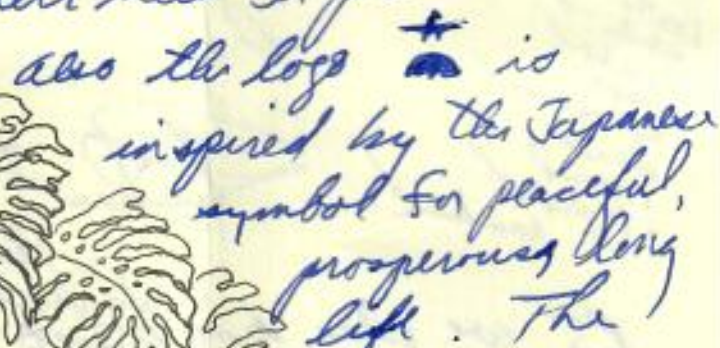 also the logo is
inspired by the Japanese
symbol for peaceful,
prosperous, long
life. The